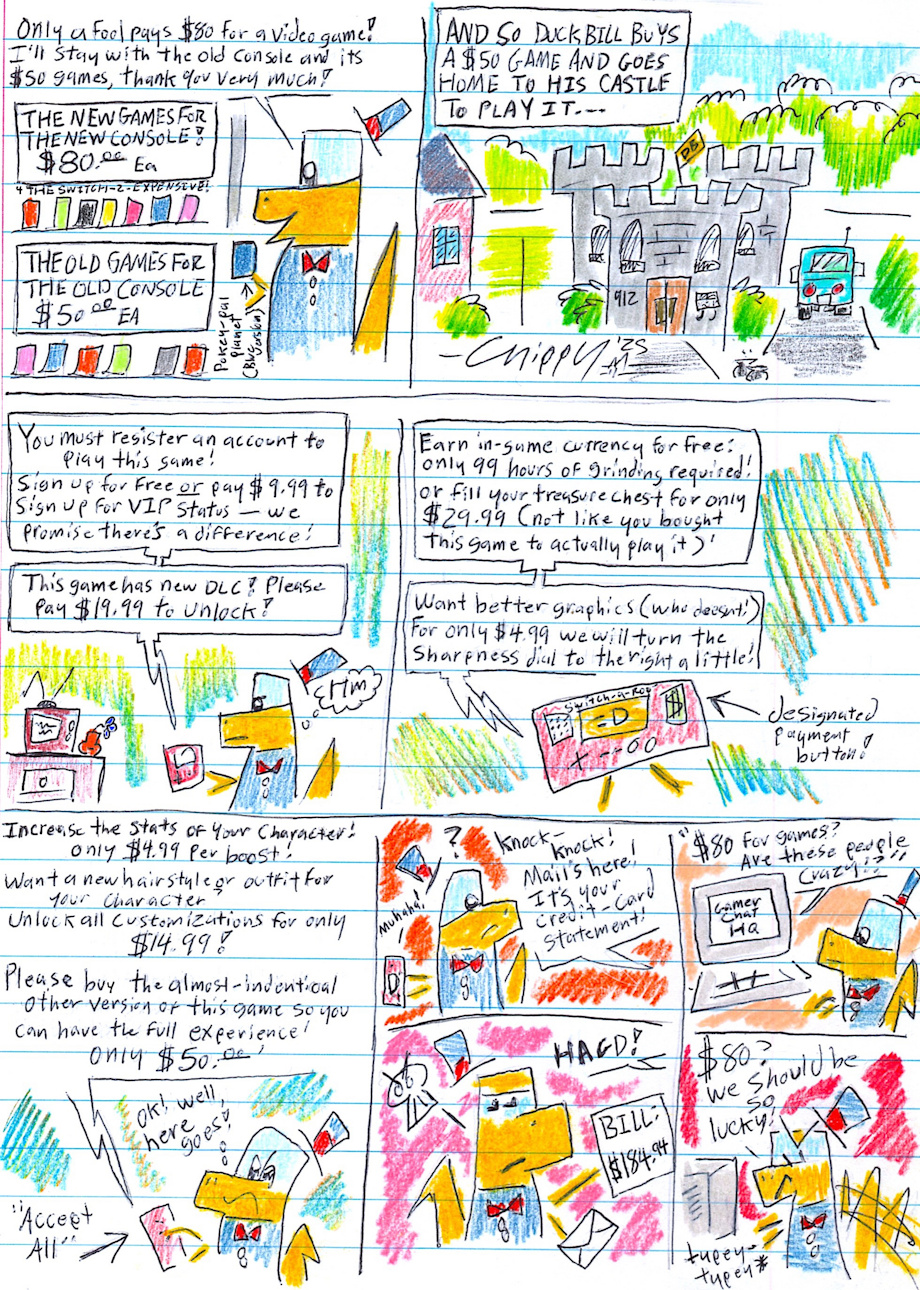 Only a fool pays $80 for a video game!
I'll stay with the old console and its
$50 games, thank you very much!
THE NEW GAMES FOR
THE NEW CONSOLE!
$80.00 Ea
4 THE SWITCH-2-EXPENSIVE!
THE OLD GAMES FOR
THE OLD CONSOLE
$50.00 EA
Pokey-pal
planet
(Blue version)
AND SO DUCKBILL BUYS
A $50 GAME AND GOES
HOME TO HIS CASTLE
TO PLAY IT...
DB
912
-Chippy '25
You must resister an account to
play this game!
Sign up for free or pay $9.99 to
Sign up for VIP status — we
promise there's a difference!
This game has new DLC! Please
pay $19.99 to unlock!
Earn in-game currency for free!
only 99 hours of grinding required!
or fill your treasure chest for only
$29.99 (not like you bought
this game to actually play it)!
Want better graphics (who doesn't!)
For only $4.99 we will turn the
sharpness dial to the right a little!
Switch-a-Roo
=D
$
designated
payment
button!
Increase the stats of your character!
only $4.99 per boost!
Want a new hairstyle or outfit for
your character?
Unlock all customizations for only
$14.99!
Please buy the almost-indentical
other version of this game so you
can have the full experience!
only $50.00!
OK! well,
here
goes!
"Accept
All"
?
Knock-
knock!
Mail's here!
It's your
credit-card
statement!
Muhaha!
D
HAGD!
BILL-
$184.94
"$80 for games?
Are these people
crazy!?"
Gamer
Chat
HQ
$80?
we should be
so
lucky!
tupey-
tupey*